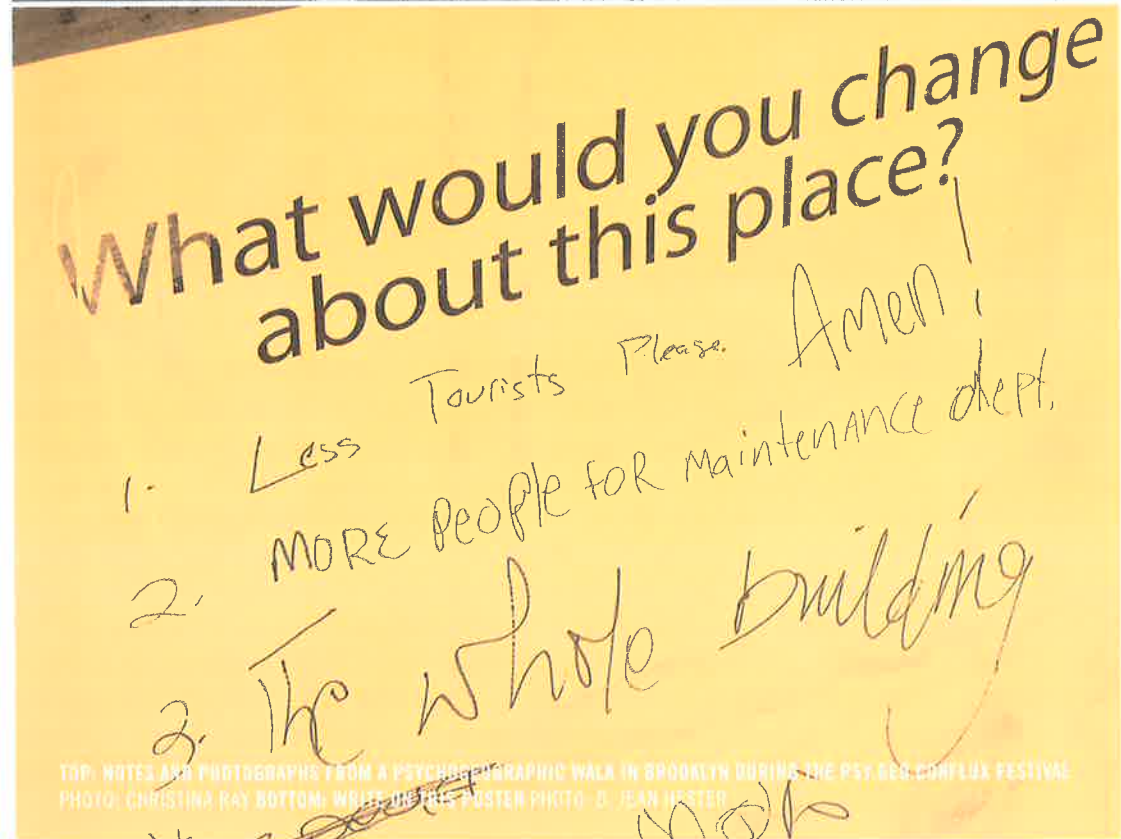 What would you change
about this place?
1. Less Tourists Please. Amen!
2. MORE PeOPle foR Maintenance dept.
3. The whole building
TOP: NOTES AND PHOTOGRAPHS FROM A PSYCHOGEOGRAPHIC WALK IN BROOKLYN DURING THE PSY.GEO.CONFLUX FESTIVAL
PHOTO: CHRISTINA RAY BOTTOM: WRITE ON THIS POSTER PHOTO: D. JEAN HESTER